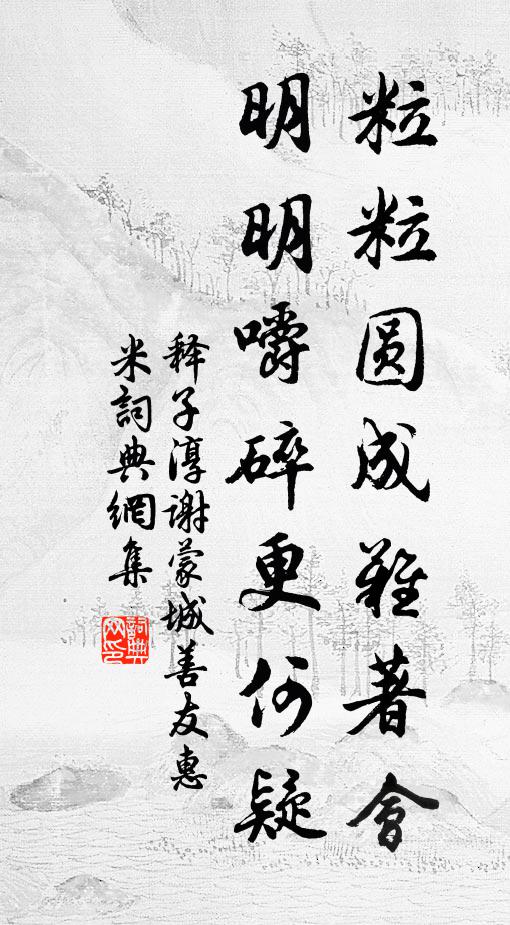 粒粒圆成难著會
明明嚼碎更何疑
释子淳谢蒙城善友惠
米詞典網集
詞典網印